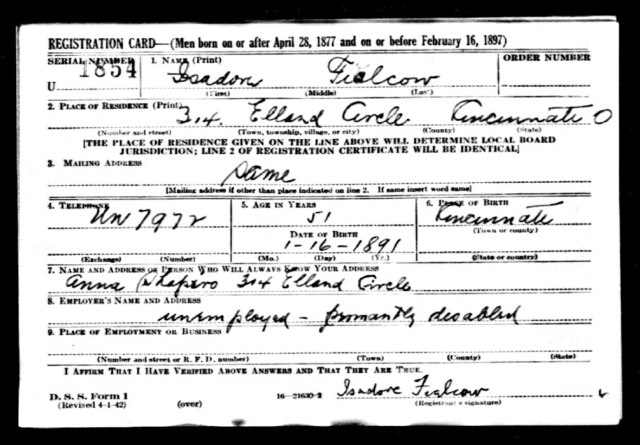 REGISTRATION CARD—(Men born on or after April 28, 1877 and on or before February 16, 1897)
SERIAL NUMBER 1. NAME (Print) ORDER NUMBER
U 1854 Isadore Fialcow
(First) (Middle) (Last)
2. PLACE OF RESIDENCE (Print)
314. Elland Circle Cincinnati O
(Number and street) (Town, township, village, or city) (County) (State)
[THE PLACE OF RESIDENCE GIVEN ON THE LINE ABOVE WILL DETERMINE LOCAL BOARD
JURISDICTION; LINE 2 OF REGISTRATION CERTIFICATE WILL BE IDENTICAL]
3. MAILING ADDRESS
Same
[Mailing address if other than place indicated on line 2. If same insert word same]
4. TELEPHONE 5. AGE IN YEARS 6. PLACE OF BIRTH
Un 7972 51 Cincinnati
DATE OF BIRTH (Town or county)
1-16-1891
(Exchange) (Number) (Mo.) (Day) (Yr.) (State or country)
7. NAME AND ADDRESS OF PERSON WHO WILL ALWAYS KNOW YOUR ADDRESS
Anna Shapiro 314 Elland Circle
8. EMPLOYER'S NAME AND ADDRESS
unemployed - permantly disabled
9. PLACE OF EMPLOYMENT OR BUSINESS
(Number and street or R. F. D. number) (Town) (County) (State)
I AFFIRM THAT I HAVE VERIFIED ABOVE ANSWERS AND THAT THEY ARE TRUE.
Isadore Fialcow
D. S. S. Form 1 (Revised 4-1-42) (over) 16—21630-2 (Registrant's signature)